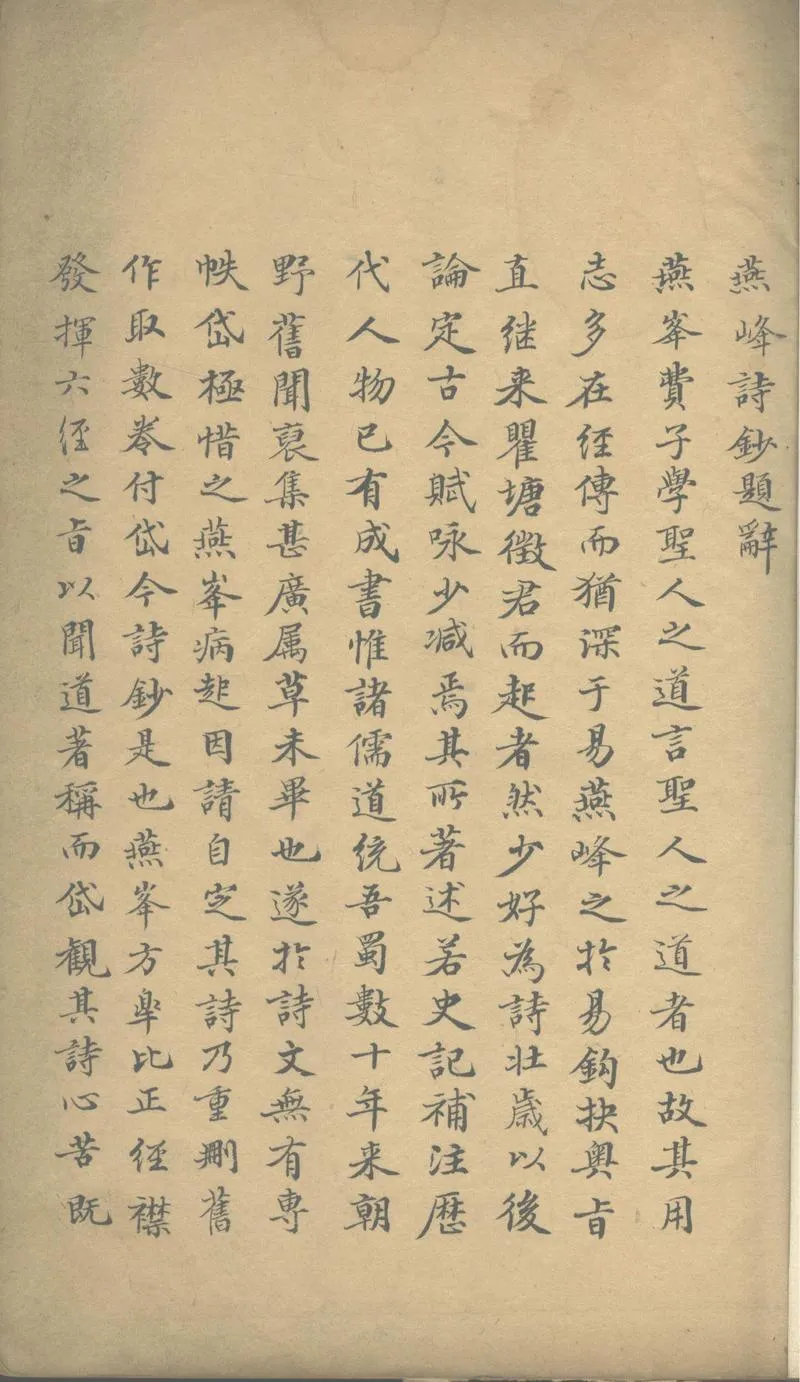 燕峰詩鈔題辭
燕峯費子學聖人之道言聖人之道者也故其用
志多在经傳而猶深于易燕峰之扵易鈎抉奥㫖
直继来瞿塘徵君而起者然少好為詩壮歳以後
論定古今賦咏少减焉其所著述若史記補注歴
代人物已有成書惟諸儒道统吾蜀數十年来朝
野舊聞裒集甚廣属草未畢也遂扵詩文無有専
帙岱極惜之燕峯病起因請自定其詩乃重刪舊
作取數卷付岱今詩鈔是也燕峯方皐比正经襟
發揮六经之㫖以聞道著稱而岱觀其詩心苦既